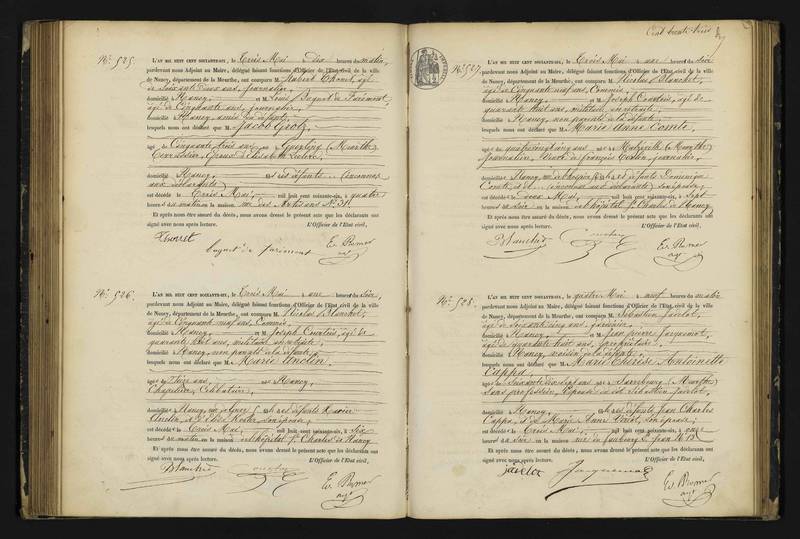 No. 525.
L'AN MIL HUIT CENT SOIXANTE-SIX, le trois Mai à dix heures du matin,
pardevant nous Adjoint au Maire, délégué faisant fonctions d'Officier de l'Etat civil de la ville
de Nancy, département de la Meurthe, ont comparu M. Hubert Thouret, âgé
de Soixante deux ans, journalier,
domicilié à Nancy, et Louis Baguet de
âgé de Cinquante ans, journalier,
domicilié à Nancy, amis du défunt;
lesquels nous ont déclaré que M. Jacob
âgé de Cinquante trois ans, né à (Meurthe)
Cordonnier, Epoux d'Elisabeth
domicilié à Nancy, et des défunts (inconnus
aux déclarants)
est décédé le trois Mai, mil huit cent soixante-six, à quatre
heures du matin en la maison rue des Artisans No. 34
Et après nous être assuré du décès, nous avons dressé le présent acte que les déclarants ont
signé avec nous après lecture. L'Officier de l'Etat civil,
Thouret
baguet de
No. 526.
L'AN MIL HUIT CENT SOIXANTE-SIX, le trois Mai à une heure du soir,
pardevant nous Adjoint au Maire, délégué faisant fonctions d'Officier de l'Etat civil de la ville
de Nancy, département de la Meurthe, ont comparu M. Nicolas Blanchet,
âgé de Cinquante neuf ans, Commis,
domicilié à Nancy, et M. Joseph Courtois, âgé de
quarante huit ans, militaire en retraite,
domicilié à Nancy, non parents de la défunte;
lesquels nous ont déclaré que M. Marie
âgée de ans, née à Nancy,
Chapelière, Célibataire,
domiciliée à Nancy, et des défunts
est décédée le trois Mai, mil huit cent soixante-six, à six
heures du matin en la maison hôpital St. Charles de Nancy
Et après nous être assuré du décès, nous avons dressé le présent acte que les déclarants ont
signé avec nous après lecture. L'Officier de l'Etat civil,
Blanchet
Cent trente trois
No. 527.
L'AN MIL HUIT CENT SOIXANTE-SIX, le trois Mai à une heure du soir
pardevant nous Adjoint au Maire, délégué faisant fonctions d'Officier de l'Etat civil de la ville
de Nancy, département de la Meurthe, ont comparu M. Nicolas Blanchet,
âgé de Cinquante neuf ans, Commis,
domicilié à Nancy, et M. Joseph Courtois, âgé de
quarante huit ans, militaire en retraite,
domicilié à Nancy, non parents de la défunte;
lesquels nous ont déclaré que M. Marie Anne Comte,
âgée de quatre vingt cinq ans, née à Malzéville (Meurthe)
journalière, Veuve de françois journalier,
domiciliée à Nancy, et des défunts Dominique
Comte, et de (inconnue aux déclarants) son épouse;
est décédée le deux Mai, mil huit cent soixante-six, à sept
heures du soir en la maison hôpital St. Charles de Nancy
Et après nous être assuré du décès, nous avons dressé le présent acte que les déclarants ont
signé avec nous après lecture. L'Officier de l'Etat civil,
Blanchet
No. 528.
L'AN MIL HUIT CENT SOIXANTE-SIX, le quatre Mai à neuf heures du matin
pardevant nous Adjoint au Maire, délégué faisant fonctions d'Officier de l'Etat civil de la ville
de Nancy, département de la Meurthe, ont comparu M. Sébastien Javelot,
âgé de Soixante cinq ans,
domicilié à Nancy, et M. Jean pierre Jacquemot,
âgé de quarante huit ans, propriétaire,
domicilié à Nancy, voisin de la défunte;
lesquels nous ont déclaré que M. Marie Thérèse Antoinette
Cappa,
âgée de Soixante dix sept ans, née à Sarrebourg (Meurthe)
Sans profession, Epouse de dit Sébastien Javelot,
domiciliée à Nancy, et des défunts Jean Charles
Cappa, et de Marie Anne son épouse;
est décédée le trois Mai, mil huit cent soixante-six, à onze
heures du soir en la maison rue du faubourg St. Jean No. 12
Et après nous être assuré du décès, nous avons dressé le présent acte que les déclarants ont
signé avec nous après lecture. L'Officier de l'Etat civil,
javelot